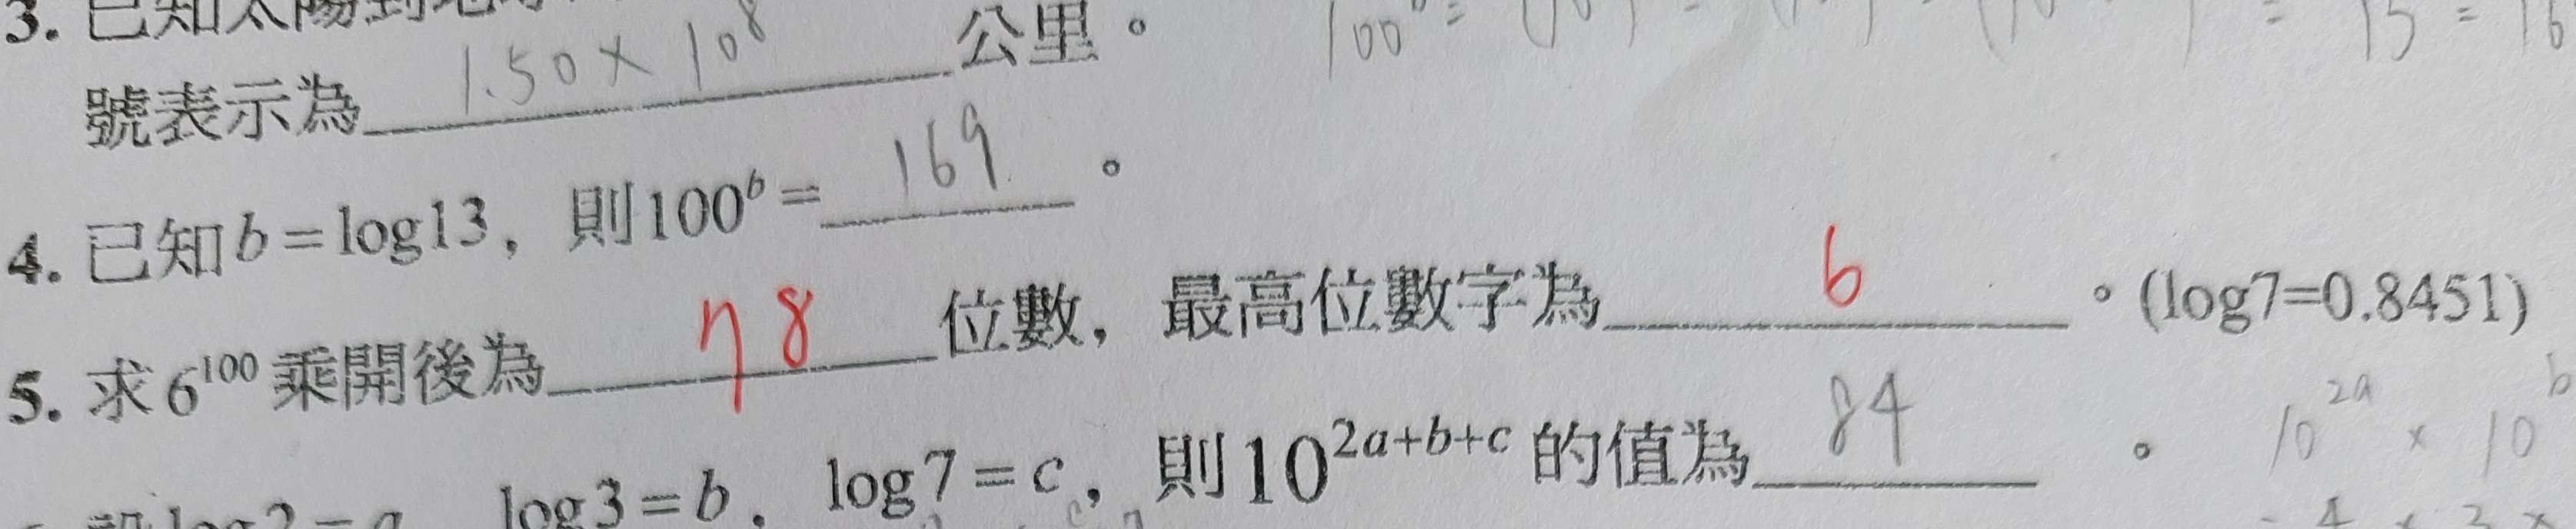 3. 已知太陽到地
號表示為 1.50×10⁸ 公里。
100ᵇ =
4. 已知b=log13，則100ᵇ= 169 。
5. 求6¹⁰⁰乘開後為 78 位數，最高位數字為 6 。(log7=0.8451)
log3=b，log7=c，則10²ᵃ⁺ᵇ⁺ᶜ的值為 84 。
10²ᵃ × 10ᵇ